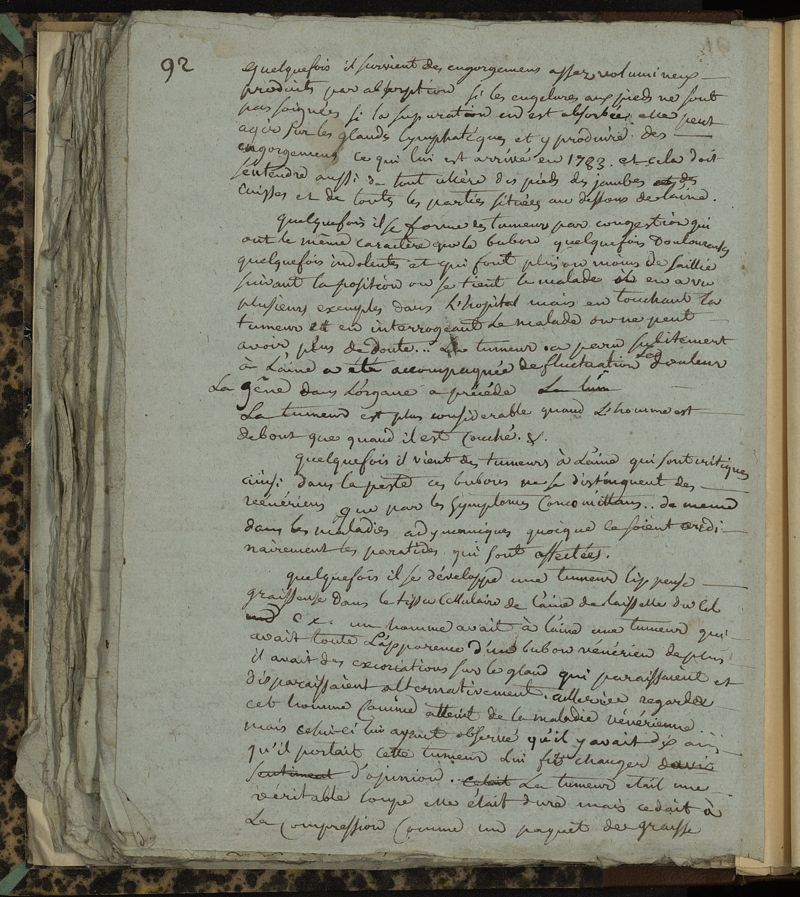 92
quelquefois il survient des engorgemens assez volumineux
produits par absorption si les engelures aux pieds ne sont
pas soignées si la supuration en est absorbée elle peut
agir sur les glands lymphatiques et y produire des
engorgemens ce qui lui est arrivé en 1783. et cela doit
sentendre aussi de tout ulcère des pieds des jambes et des
cuisses et de toutes les parties situées au dessous de laine.
quelquefois il se forme des tumeurs par congestion qui
ont le même caractère que le bubon quelquefois Douloureuses
quelquefois indolentes et qui font plus ou moins de saillie
suivant la position ou se tient le malade il en a vu
plusieurs exemples dans l'hopital mais en touchant la
tumeur et en interrogeant le malade on ne peut
avoir plus de doute... La tumeur a paru subitement
à L'aine a été accompagnée de fluctuation Les douleur
La gêne dans L'organe a précédé La tum
La tumeur est plus considerable quand L'homme est
debout que quand il est couché. &.
quelquefois il vient des tumeurs à L'aine qui sont critiques
ainsi dans la peste ces bubons ne se distinguent des
vénériens que par les Symptomes Concomittans.. de meme
dans les maladies adynamiques quoique ce soient ordi-
nairement les parotides qui sont affectées.
quelquefois il se développe une tumeur lippeuse
graisseuse dans le tissu Cellulaire de l'aine de laisselle du Col
Ex. un homme avait à laine une tumeur qui
avait toute L'apparence d'un bubon vénérien de plus
il avait des excoriations sur le gland qui paraissaient et
disparaissaient alternativement. cullerier regarda
cet homme comme atteint de la maladie vénérienne...
mais celui-ci lui ayant observé qu'il y avait dix ans
qu'il portait cette tumeur Lui fit changer davis
sentiment d'opinion.. c'etait La tumeur etait une
véritable loupe elle etait dure mais cedait à
La compression Comme un paquet de graisse